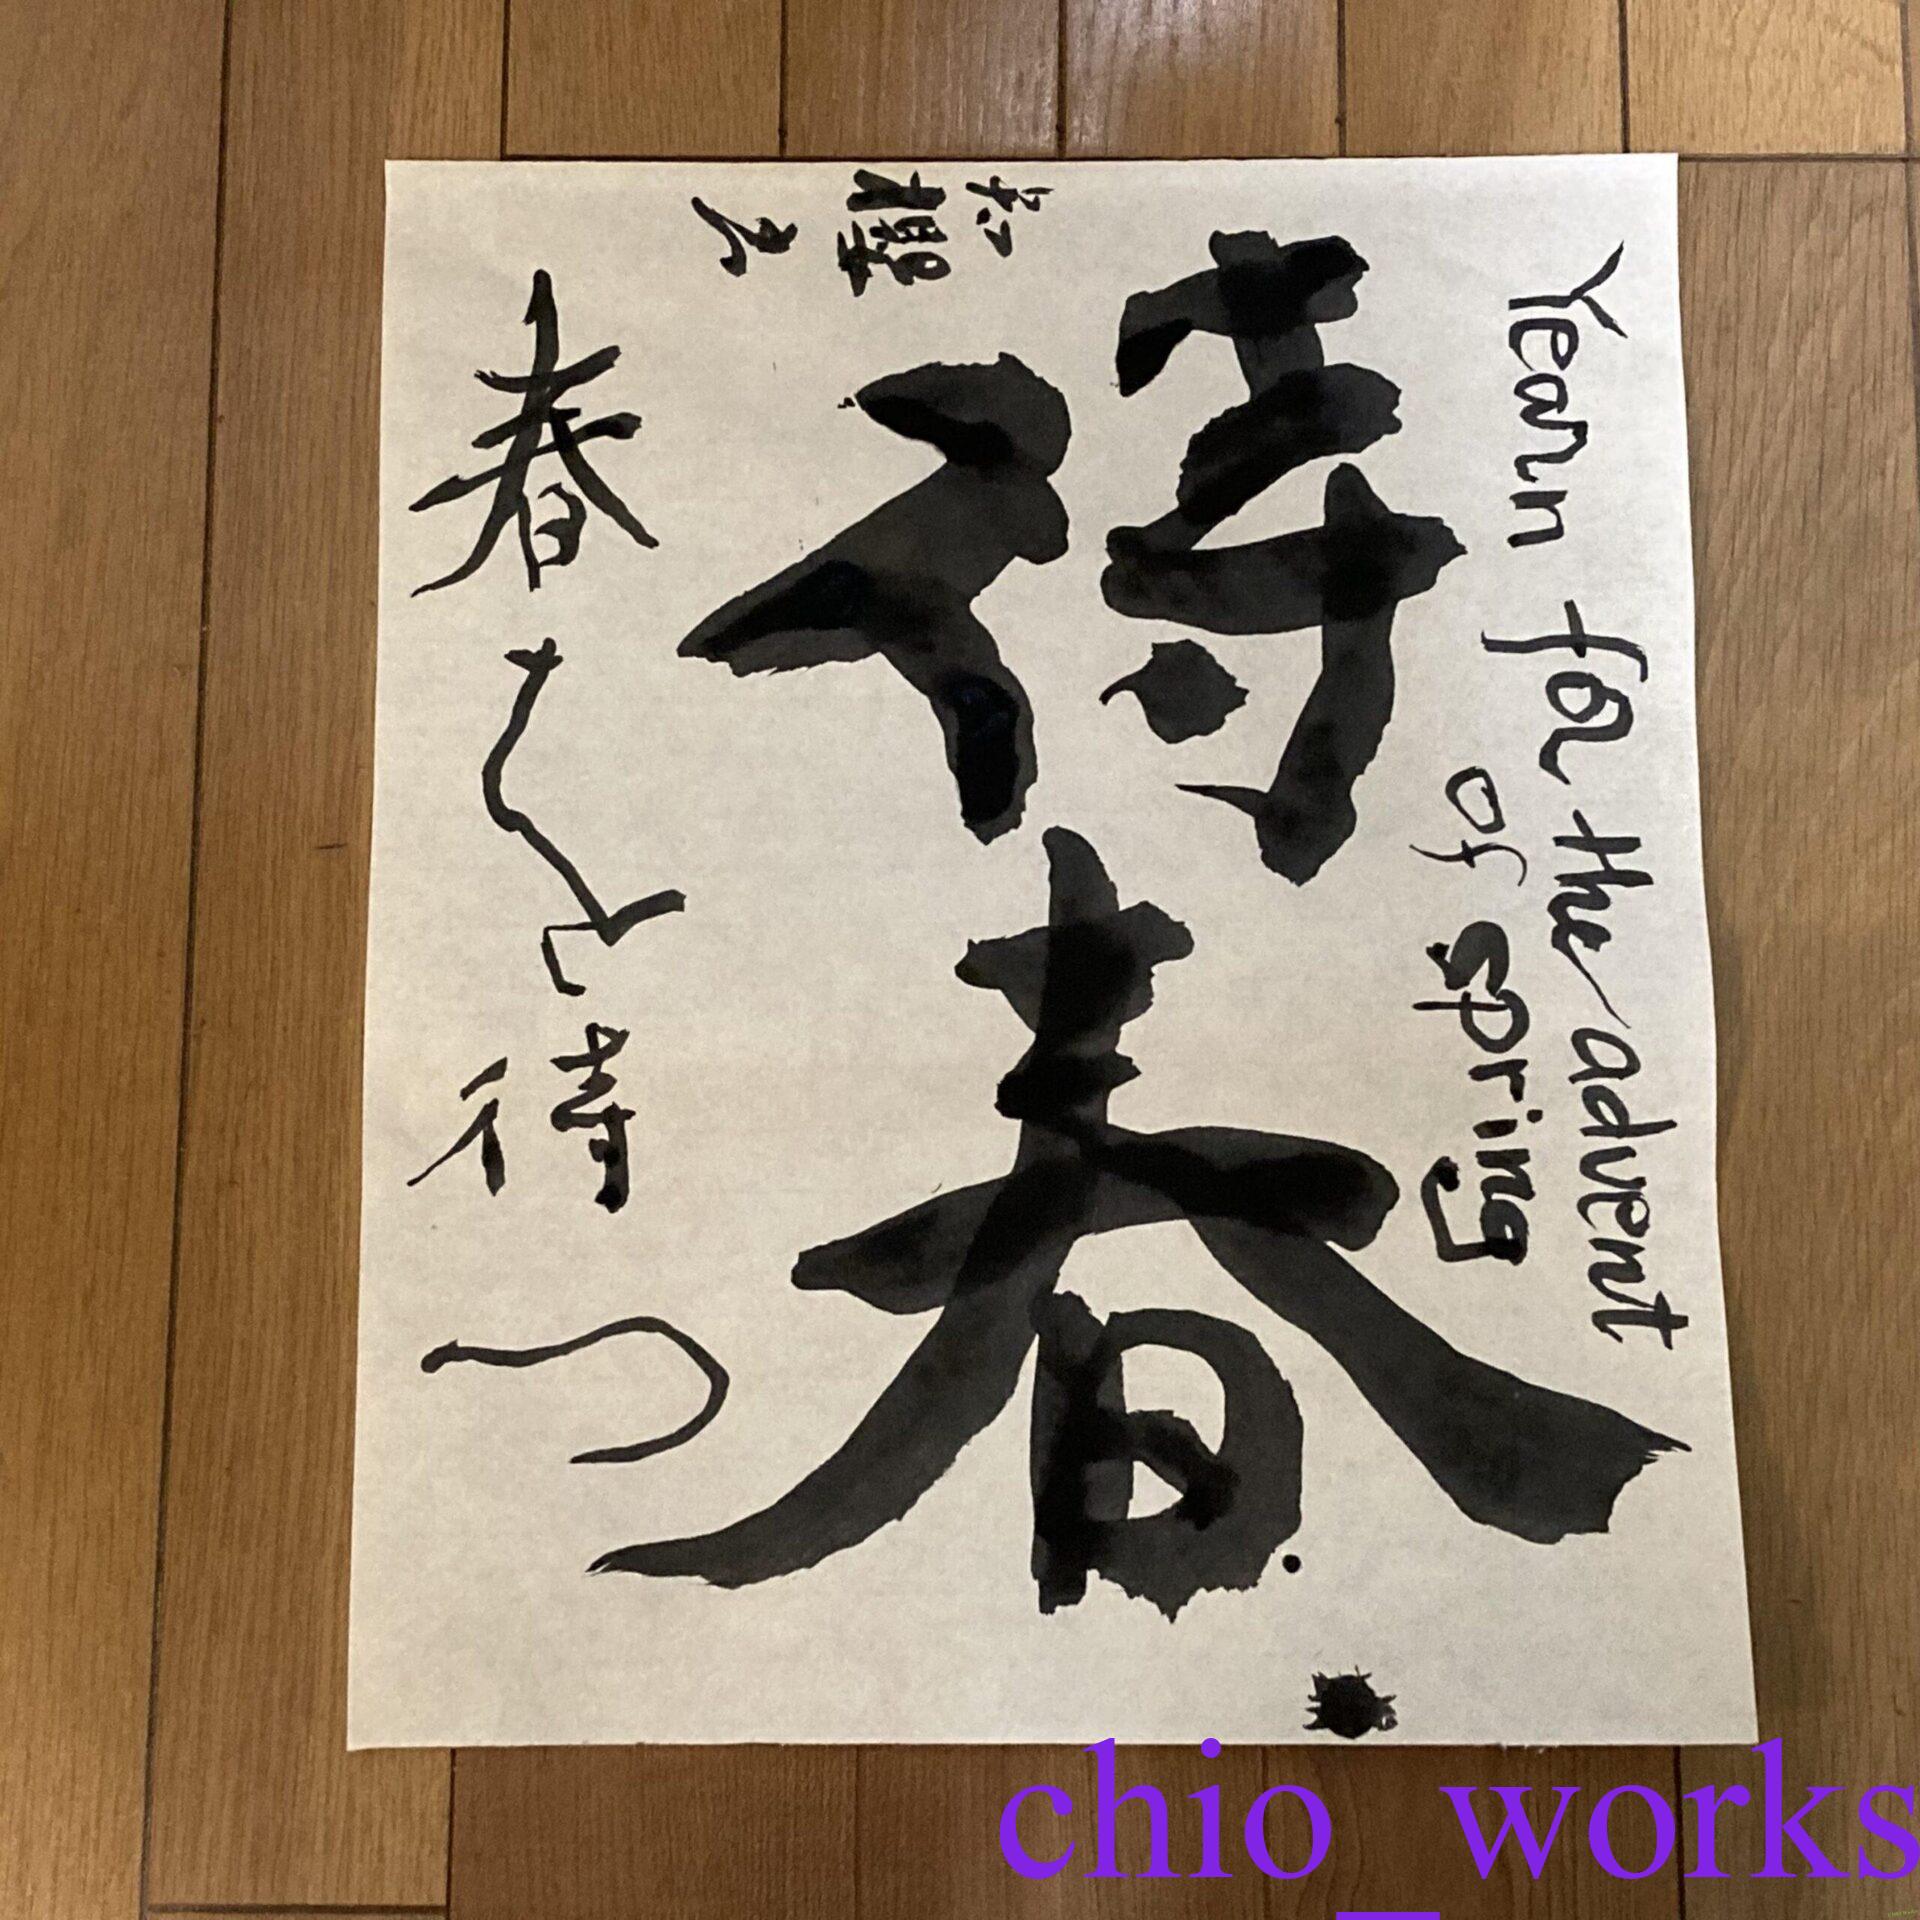 Yearn for the advent
of spring
待春
春を待つ
chio_works